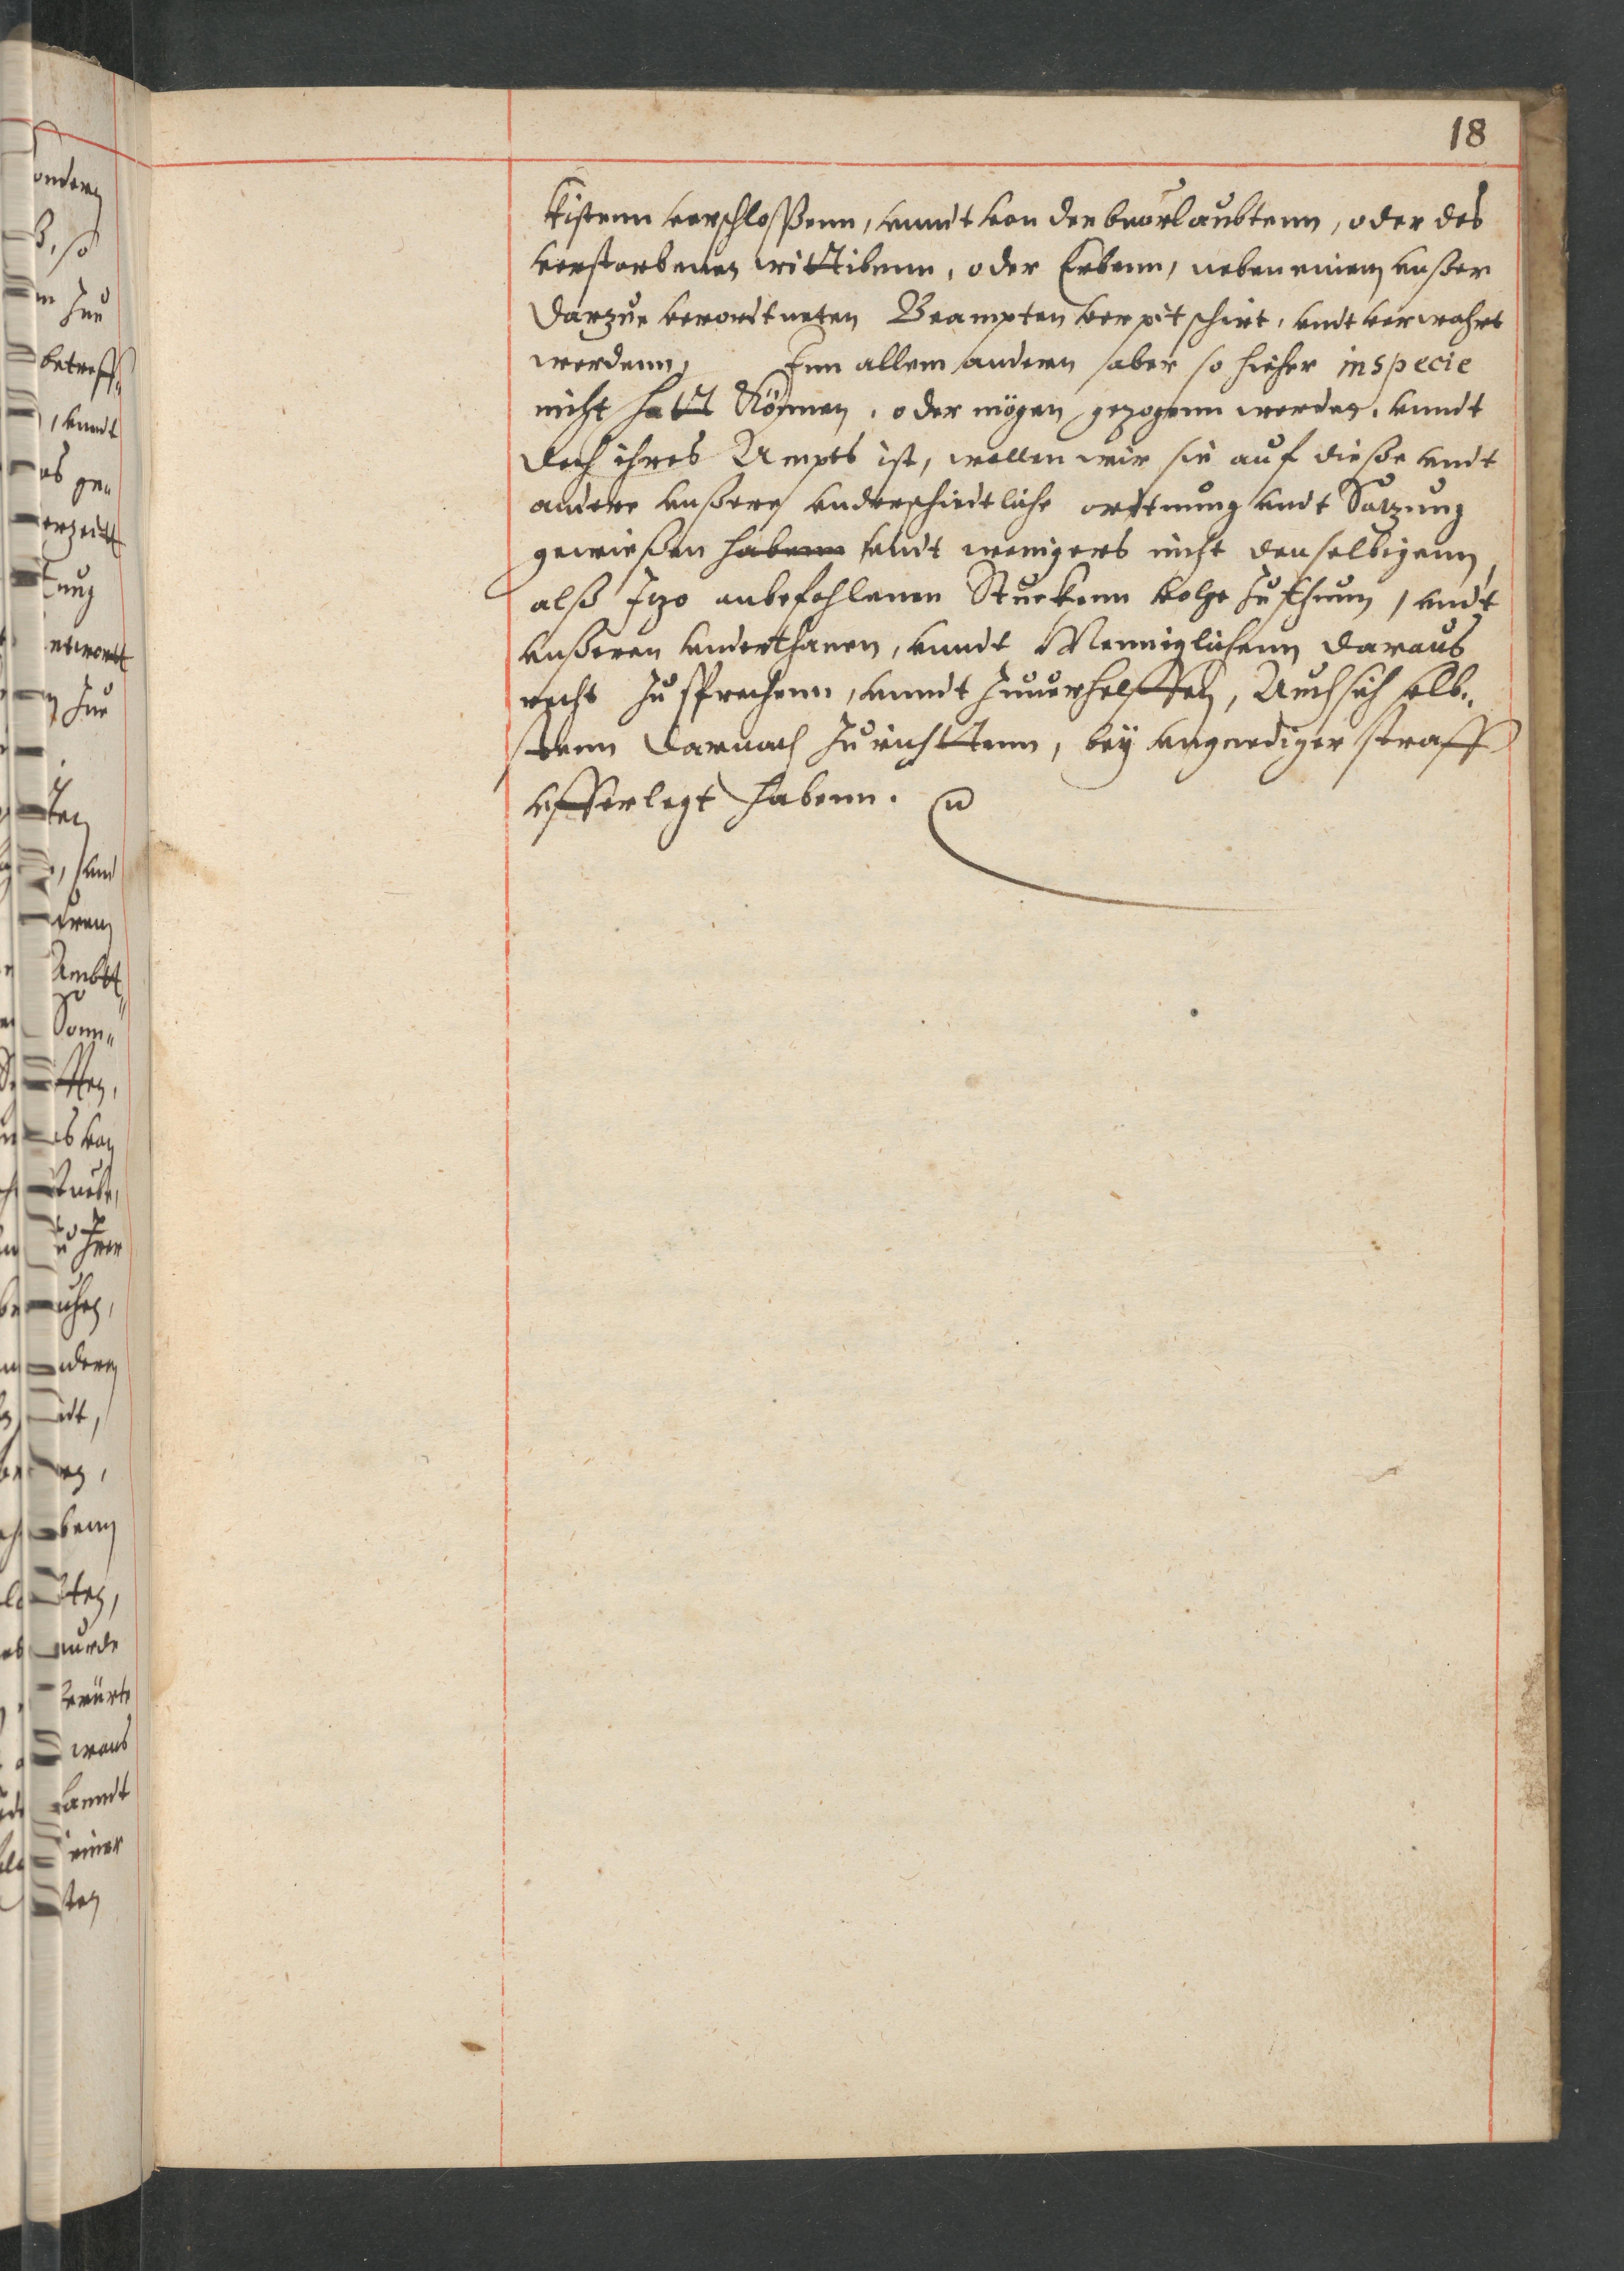 18
kistenn verschloßenn, vnndt von den beurlaubtenn, oder des
verstorbenen wittibenn, oder Erbenn, neben einem vnßer
darzue verordtneten Beampten verpitschirt, vndt verwahrt
werdenn, Inn allem andern aber so hieher in specie
nicht hatt können, oder mögen gezogenn werden, vnndt
doch ihres Ampts ist, wollen wir sie auf dieße vndt
andere vnßere vnderschiedtliche ordtnung vndt Satzung
gewießen habenn vndt wenigers nicht denselbigenn,
alß Itzo anbefohlenen Stuckenn volge zu thunn, vndt
vnßeren vnderthanen, vnndt Menniglichenn daraus
recht zu sprechenn, vnndt zuuerhelffen, Auch sich selb„
stenn darnach zu richttenn, bey vngnediger straff
vfferlegt habenn.